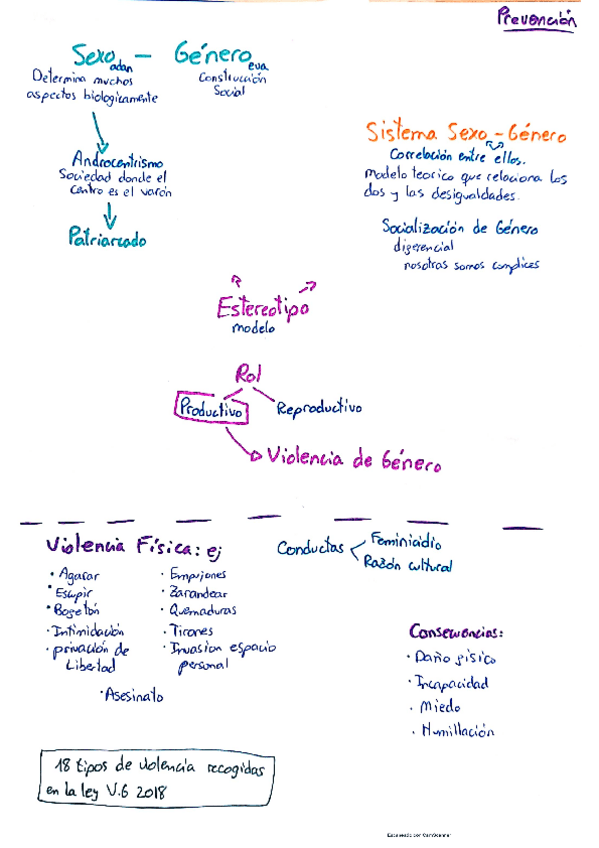 Prevención
Sexo - Género
adan eva
Determina muchos
aspectos biologicamente
Construcción
Social
Androcentrismo
Sociedad donde el
centro es el varón
Patriarcado
Sistema Sexo-Género
Correlación entre ellos.
Modelo teorico que relaciona los
dos y las desigualdades.
Socialización de Género
digerencial
nosotras somos complices
Estereotipo
modelo
Rol
Productivo
Reproductivo
Violencia de Género
Violencia Física: ej
· Agarar
· Escupir
· Bogetón
· Intimidación
· privación de
Libertad
· Empujones
· Zarandear
· Quemaduras
· Tirones
· Invasion espacio
personal
· Asesinato
Conductas
Feminicidio
Razón cultural
Consecuencias:
· Daño gisico
· Incapacidad
· Miedo
· Humillación
18 tipos de violencia recogidas
en la ley V.6 2018
Escaneado con CamScanner